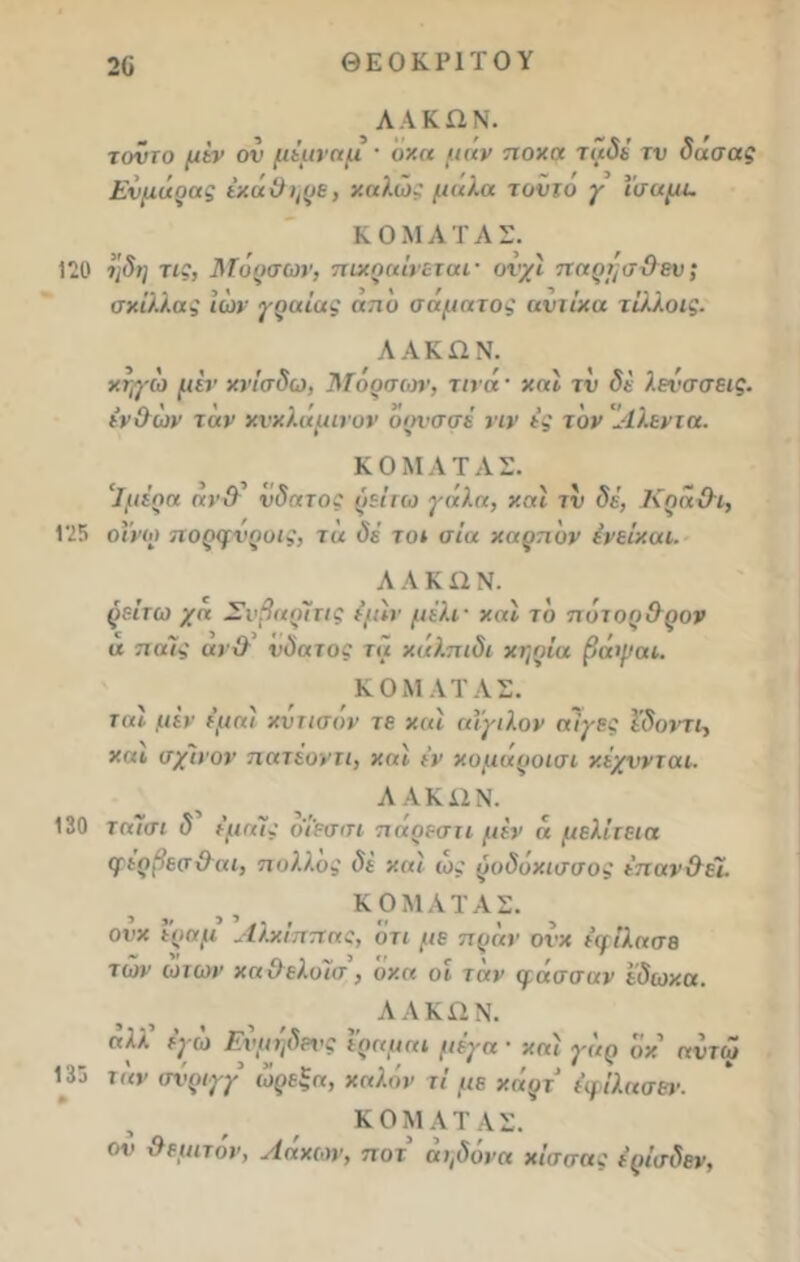 26 ΘΕΟΚΡΙΤΟΥ
ΛΑΚΩΝ.
τοῦτο μὲν οὐ μέμναμ᾽ · ὅκα μάν ποκα τᾷδέ τυ δάσας
Εὐμάρας ἐκάθηρε, καλῶς μάλα τοῦτό γ᾽ ἴσαμι.
ΚΟΜΑΤΑΣ.
120 ἤδη τις, Μόρσων, πικραίνεται· οὐχὶ παρῄσθευ;
σκίλλας ἰὼν γραίας ἀπὸ σάματος αὐτίκα τίλλοις.
ΛΑΚΩΝ.
κἠγὼ μὲν κνίσδω, Μόρσων, τινά· καὶ τὺ δὲ λεύσσεις.
ἐνθὼν τὰν κυκλάμινον ὄρυσσέ νιν ἐς τὸν Ἄλεντα.
ΚΟΜΑΤΑΣ.
Ἱμέρα ἀνθ᾽ ὕδατος ῥείτω γάλα, καὶ τὺ δέ, Κρᾶθι,
125 οἴνῳ πορφύροις, τὰ δέ τοι σία καρπὸν ἐνείκαι.
ΛΑΚΩΝ.
ῥείτω χἀ Συβαρῖτις ἐμὶν μέλι· καὶ τὸ πότορθρον
ἁ παῖς ἀνθ᾽ ὕδατος τᾷ κάλπιδι κηρία βάψαι.
ΚΟΜΑΤΑΣ.
ταὶ μὲν ἐμαὶ κύτισόν τε καὶ αἴγιλον αἶγες ἔδοντι,
καὶ σχῖνον πατέοντι, καὶ ἐν κομάροισι κέχυνται.
ΛΑΚΩΝ.
130 ταῖσι δ᾽ ἐμαῖς ὀΐεσσι πάρεστι μὲν ἁ μελίτεια
φέρβεσθαι, πολλὸς δὲ καὶ ὡς ῥοδόκισσος ἐπανθεῖ.
ΚΟΜΑΤΑΣ.
οὐκ ἔραμ᾽ Ἀλκίππας, ὅτι με πρὰν οὐκ ἐφίλασε
τῶν ὤτων καθελοῖσ᾽, ὅκα οἱ τὰν φάσσαν ἔδωκα.
ΛΑΚΩΝ.
ἀλλ᾽ ἐγὼ Εὐμήδευς ἔραμαι μέγα · καὶ γὰρ ὅκ᾽ αὐτῷ
135 τὰν σύριγγ᾽ ὤρεξα, καλόν τί με κάρτ᾽ ἐφίλασεν.
ΚΟΜΑΤΑΣ.
οὐ θεμιτόν, Λάκων, ποτ᾽ ἀηδόνα κίσσας ἐρίσδεν,